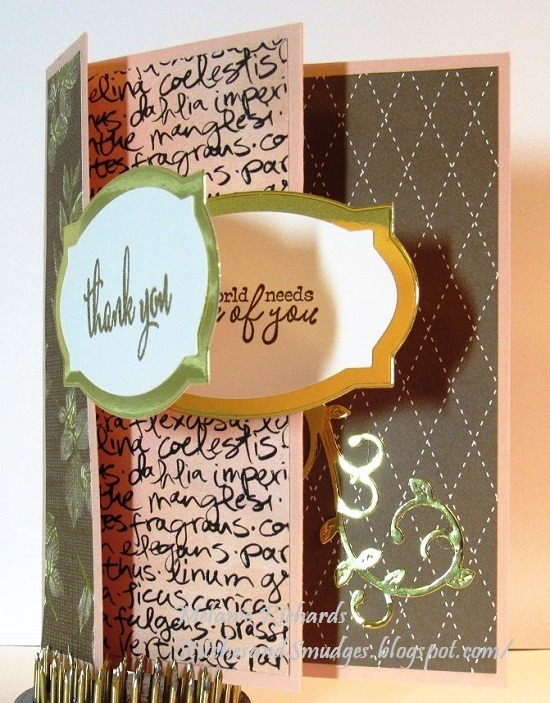 elina coelestis
dahlia imperi
the manglesi
tes fragrans. co
elegans. par
thank you
world needs
of you
flexuosa. la
lina coelestis
us. dahlia imperi
the manglesi.
tes fragrans. co
n elegans. par
thus. linum g
a ficus. carica
a fulgens. brass
a vert
Richards
and Smudges.blogspot.com/